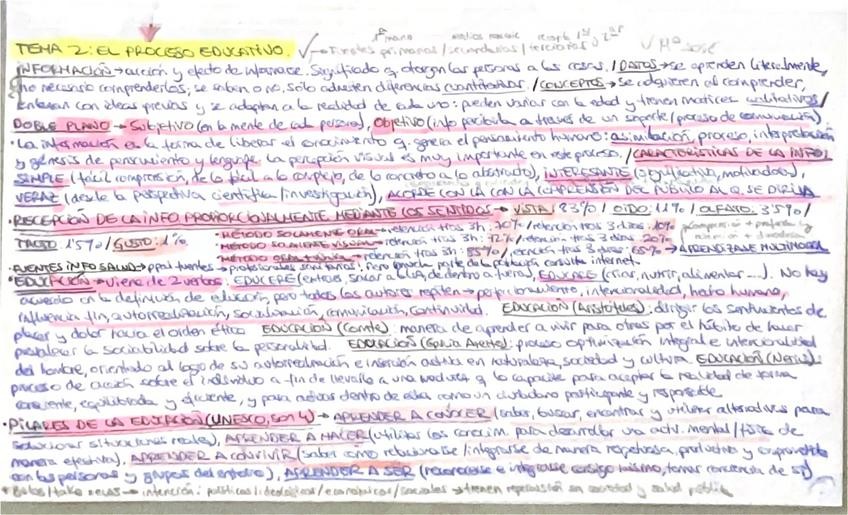 TEMA 2: EL PROCESO EDUCATIVO. → Fuentes primarias/secundarias/terciarias Mª José
INFORMACIÓN → acción y efecto de informarse. Significado q otorgan las personas a las cosas. / DATOS → se aprenden literalmente,
no necesario comprenderlos; se saben o no, sólo admiten diferencias cuantitativas. / CONCEPTOS → se adquieren al comprender,
enlazan con ideas previas y se adaptan a la realidad de cada uno: pueden variar con la edad y tienen matices cualitativos /
DOBLE PLANO → Subjetivo (en la mente de cada persona), Objetivo (info percibida a través de un soporte/proceso de comunicación).
• La información es la forma de liberar el conocimiento q genera el pensamiento humano: asimilación, proceso, interpretación
y génesis de pensamiento y lenguaje. La percepción visual es muy importante en este proceso. / CARACTERÍSTICAS DE LA INFO:
SIMPLE (fácil comprensión, de lo fácil a lo complejo, de lo concreto a lo abstracto), INTERESANTE (significativa, motivadora),
VERAZ (desde la perspectiva científica/investigación), ACORDE CON LA CON LA COMPRENSIÓN DEL PÚBLICO AL Q SE DIRIJA
• RECEPCIÓN DE LA INFO PROPORCIONALMENTE MEDIANTE LOS SENTIDOS → VISTA: 83% / OIDO: 11% / OLFATO: 3'5% /
TACTO 1'5% / GUSTO: 1% • MÉTODO SOLAMENTE ORAL → retención tras 3h: 70% / retención tras 3 días: 10%
• MÉTODO SOLAMENTE VISUAL → retención tras 3h: 72% / retención tras 3 días: 20%
• MÉTODO ORAL + VISUAL → retención tras 3h: 85% / retención tras 3 días: 65% → APRENDIZAJE MULTIMODAL
• FUENTES INFO SALUD → ppal fuentes → profesionales sanitarios, pero gran parte de la población consulta internet.
• EDUCACIÓN → viene de 2 verbos: EDUCERE (extraer, sacar a la luz, de dentro a fuera), EDUCARE (criar, nutrir, alimentar...). No hay
acuerdo en la definición de educación, pero todos los autores repiten → perfeccionamiento, intencionalidad, hecho humano,
influencia, fin, autorrealización, socialización, comunicación, continuidad. EDUCACIÓN (Aristóteles): dirigir los sentimientos de
placer y dolor hacia el orden ético. EDUCACIÓN (Comte): manera de aprender a vivir para otros por el hábito de hacer
prevalecer la sociabilidad sobre la personalidad. EDUCACIÓN (García Aretio): proceso optimización integral e intencionalidad
del hombre, orientado al logro de su autorrealización e inserción activa en naturaleza, sociedad y cultura. EDUCACIÓN (Nerici):
proceso de acción sobre el individuo a fin de llevarlo a una conducta q lo capacite para aceptar la realidad de forma
consciente, equilibrada y eficiente, y para actuar dentro de ella como un ciudadano participante y responsable
• PILARES DE LA EDUCACIÓN (UNESCO, son 4) → APRENDER A CONOCER (saber, buscar, encontrar y utilizar alternativas para
solucionar situaciones reales), APRENDER A HACER (utilizar los conocim. para desarrollar una activ. mental/física de
manera efectiva), APRENDER A CONVIVIR (saber cómo relacionarse/integrarse de manera respetuosa, productiva y comprometida
con las personas y grupos del entorno), APRENDER A SER (reconocerse e integrarse consigo mismo, tomar conciencia de sí)
• Bulos/fake news → intención: políticas/ideológicas/económicas/sociales → tienen repercusión en sociedad y salud pública